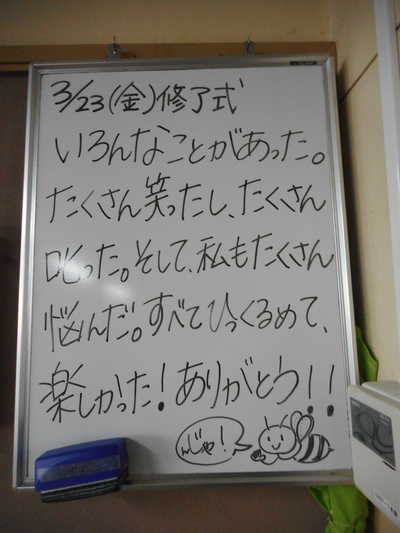 3/23(金)修了式
いろんなことがあった。
たくさん笑ったし、たくさん
叱った。そして、私もたくさん
悩んだ。すべてひっくるめて、
楽しかった！ありがとう！！
んじゃ！